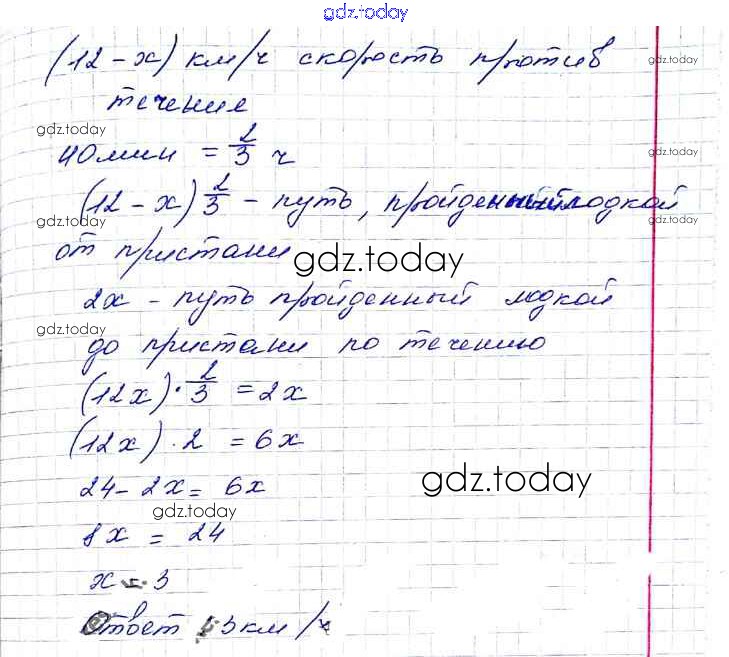 gdz.today
(12-x) км/ч скорость против
gdz.today
течение
gdz.today
40мин = 2/3 ч
gdz.today
(12-x) 2/3 - путь, пройденный лодкой
gdz.today
gdz.today
от пристани
gdz.today
2x - путь пройденный лодкой
gdz.today
до пристани по течению
(12x) · 2/3 = 2x
(12x) · 2 = 6x
24 - 2x = 6x
gdz.today
gdz.today
8x = 24
gdz.today
x = 3
Ответ : 3км/ч